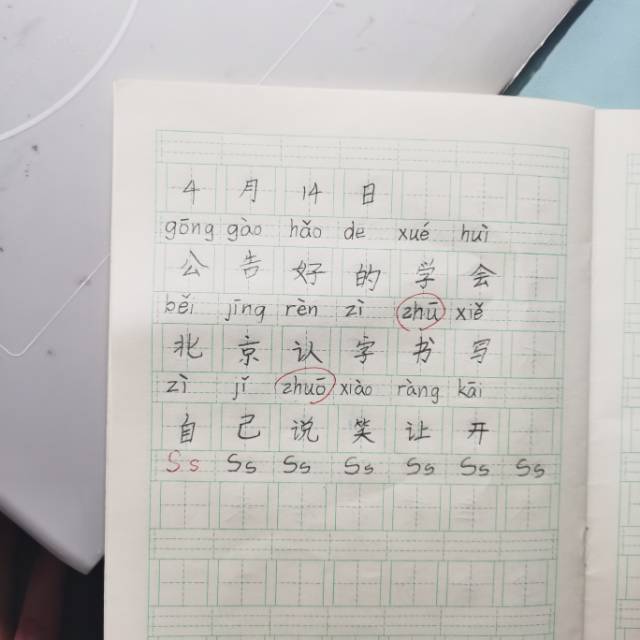 4月14日
gōng gào hǎo de xué huì
公告好的学会
běi jīng rèn zì zhū xiě
北京认字书写
zì jǐ zhuō xiào ràng kāi
自己说笑让开
Ss Ss Ss Ss Ss Ss Ss